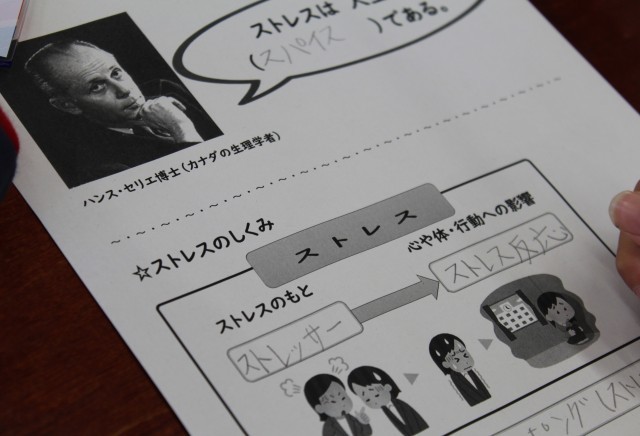 ストレスは 人
(スパイス )である。
ハンス・セリエ博士(カナダの生理学者)
☆ストレスのしくみ
ストレス
心や体・行動への影響
ストレス反応
ストレスのもと
ストレッサー
ピング(スト